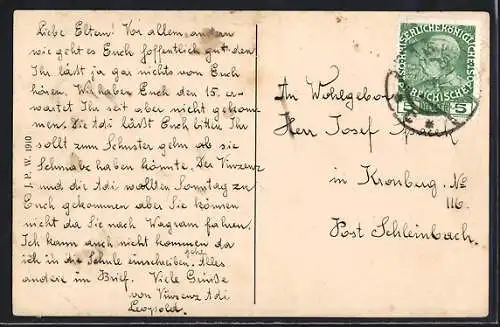 Liebe Eltern! Vor allem andern
wie geht es Euch hoffentlich gut den
Ihr läßt ja gar nichts von Euch
hören. Wir haben Euch den 15. er-
wartet Ihr seit aber nicht gekom-
men. Die Adi läßt Euch bitten Ihr
sollt zum Schuster gehn ob sie
Schuhe haben könnte. Der Vinzenz
und die Adi wollten Sonntag zu
Euch gekommen aber Sie können
nicht da Sie nach Wagram fahren.
Ich kann auch nicht kommen da
ich in die Schule einschreiben geht. Alles
andere im Brief. Viele Grüße
von Vinzenz Adi
Leopold.
J. P. W. 1910
An Wohlgebo
Herr Josef
in Kronberg No
116.
Post Schleinbach.
5